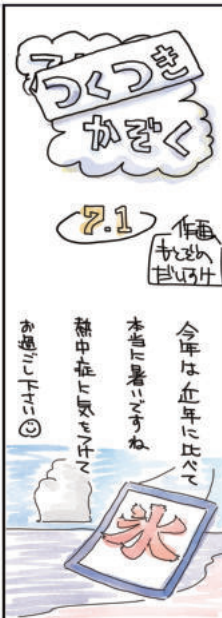 つくつき
かぞく
7.1
作画
もとぞの
だいすけ
今年は近年に比べて
本当に暑いですね
熱中症に気をつけて
お過ごし下さい
氷